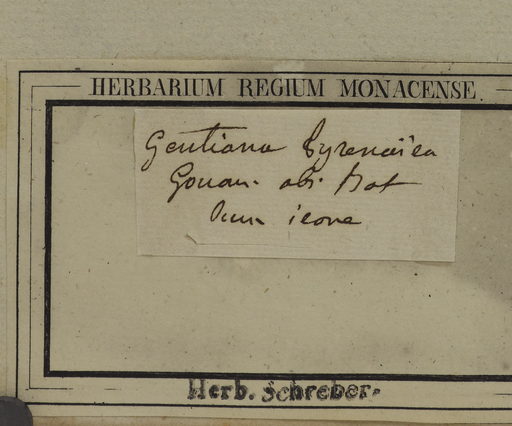 HERBARIUM REGIUM MONACENSE.
Gentiana Pyrenaïca
Gouan. obs. Bot
Cum icone
Herb. Schreber.